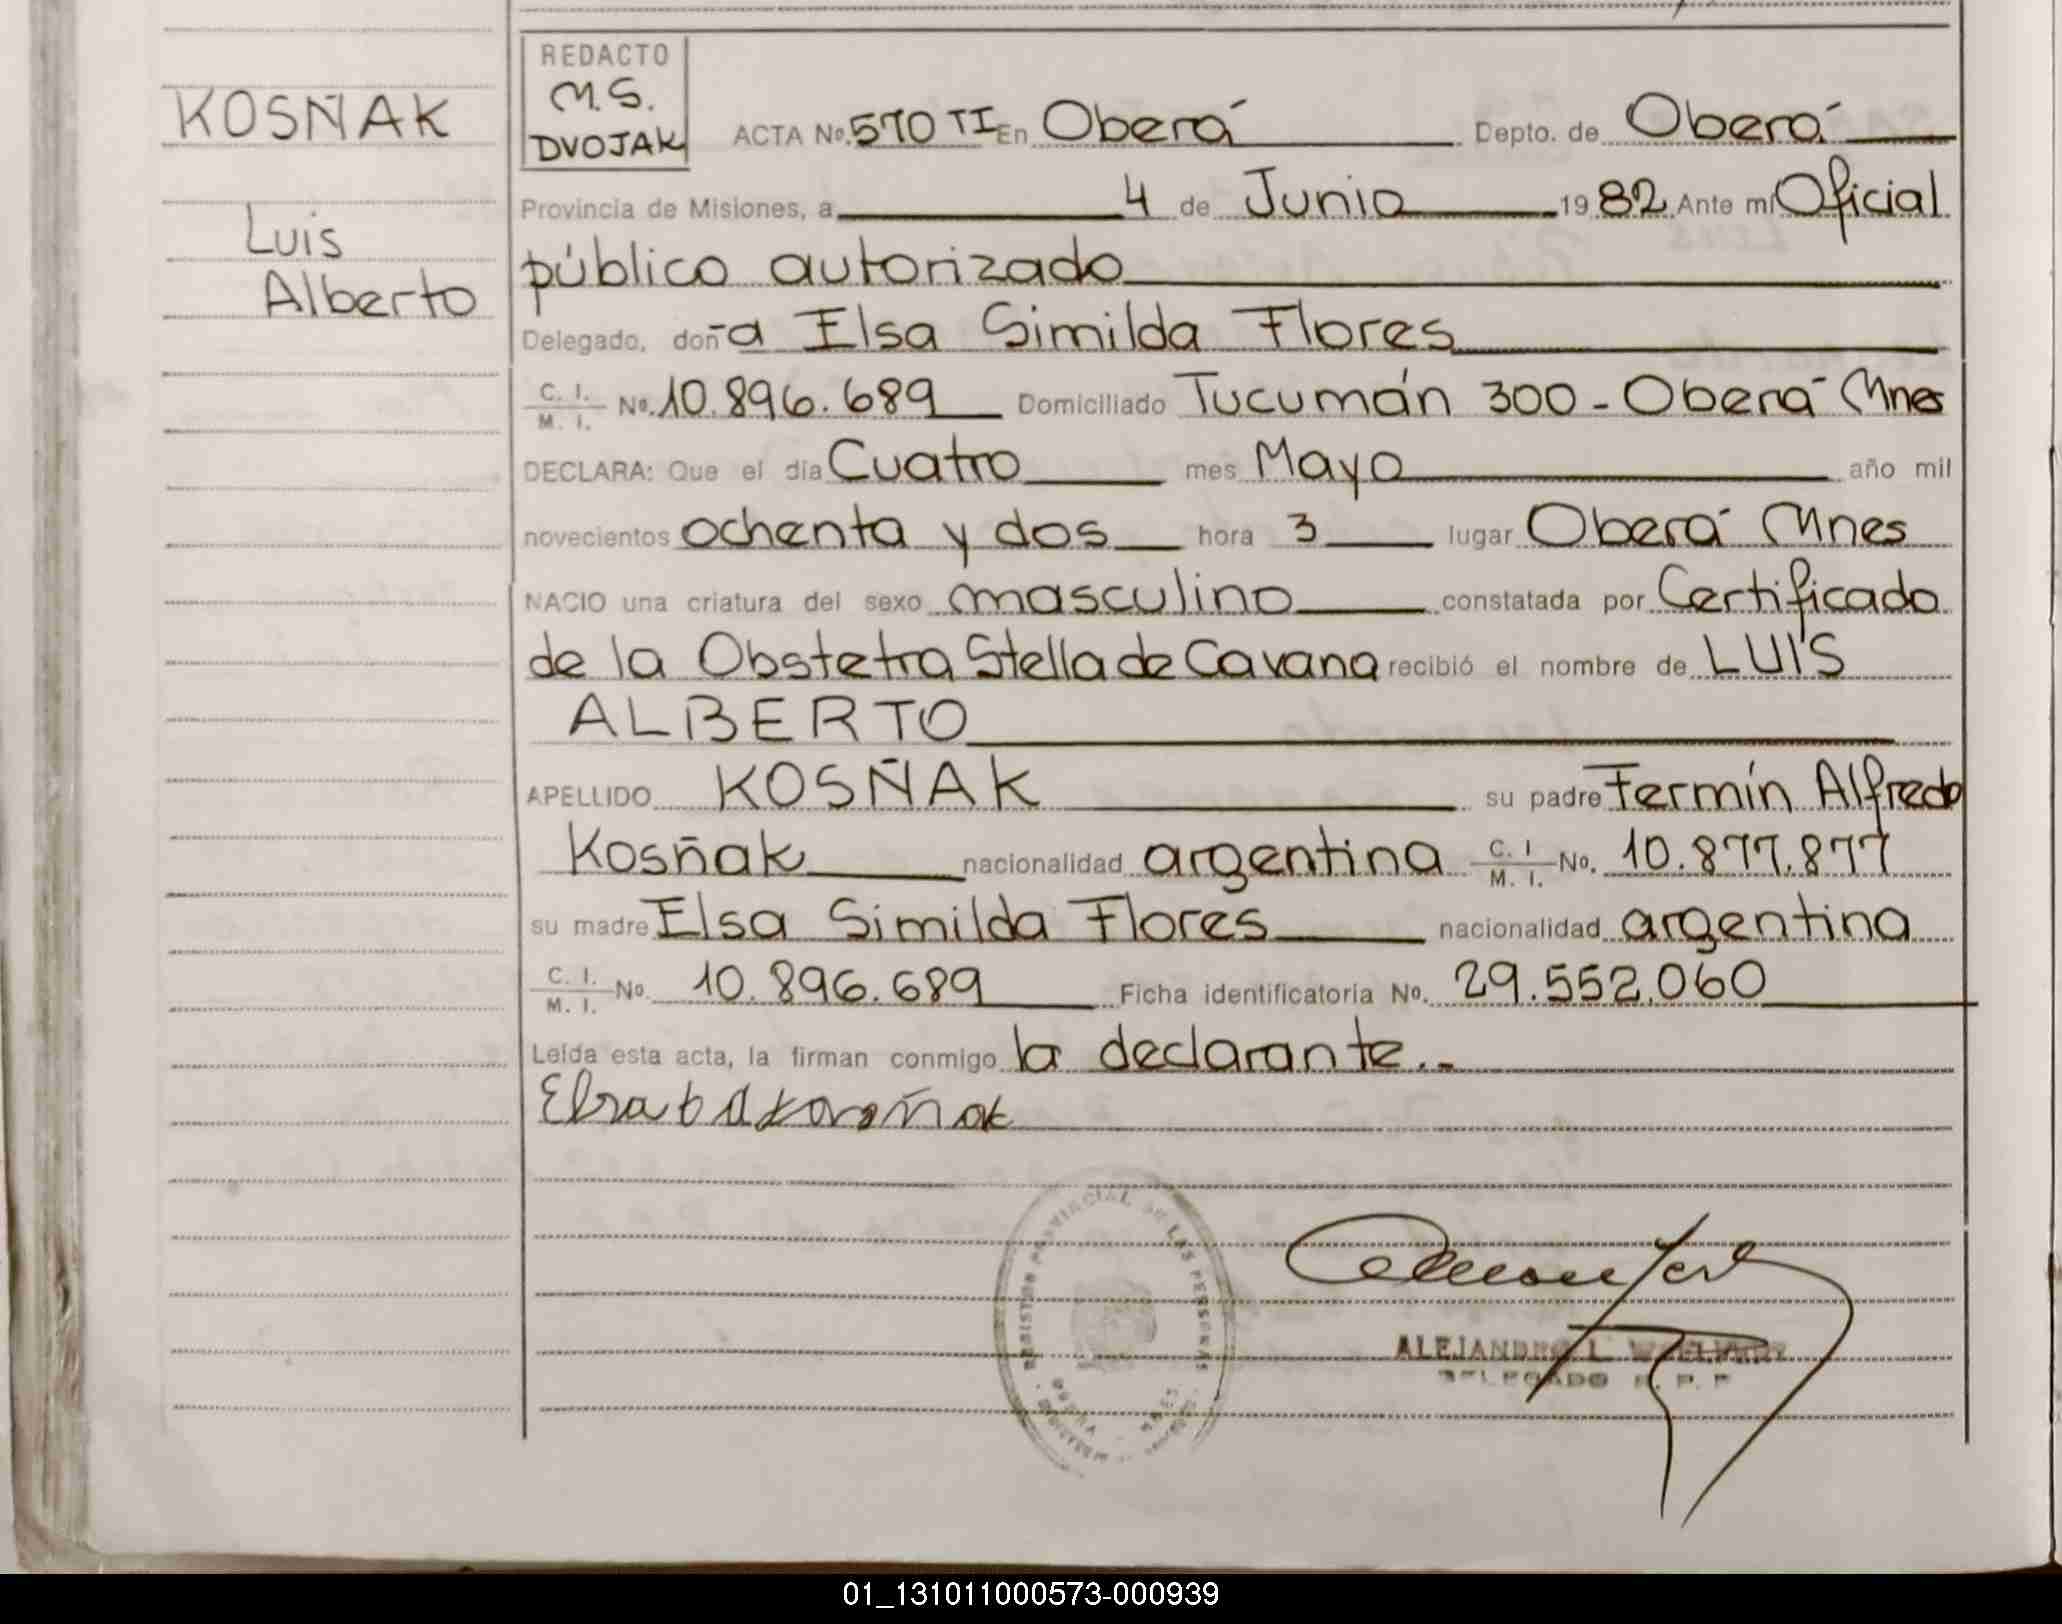 KOSÑAK
Luis
Alberto
REDACTO
M.S.
DVOJAK
ACTA No. 570 TI En Oberá Depto. de Oberá
Provincia de Misiones, a 4 de Junio 1982 Ante mí Oficial
público autorizado
Delegado, doña Elsa Similda Flores
C. I. M. I. No. 10.896.689 Domiciliado Tucumán 300 - Oberá Mnes
DECLARA: Que el día Cuatro mes Mayo año mil
novecientos ochenta y dos hora 3 lugar Oberá Mnes
NACIO una criatura del sexo masculino constatada por Certificado
de la Obstetra Stella de Cavana recibió el nombre de LUIS
ALBERTO
APELLIDO KOSÑAK su padre Fermín Alfredo
Kosñak nacionalidad argentina C. I M. I. No. 10.877.877
su madre Elsa Similda Flores nacionalidad argentina
C. I. M. I. No. 10.896.689 Ficha identificatoria No. 29.552.060
Leída esta acta, la firman conmigo la declarante.-
REGISTRO PROVINCIAL DE LAS PERSONAS
ALEJANDRO L.
DELEGADO R. P. P.
01_131011000573-000939